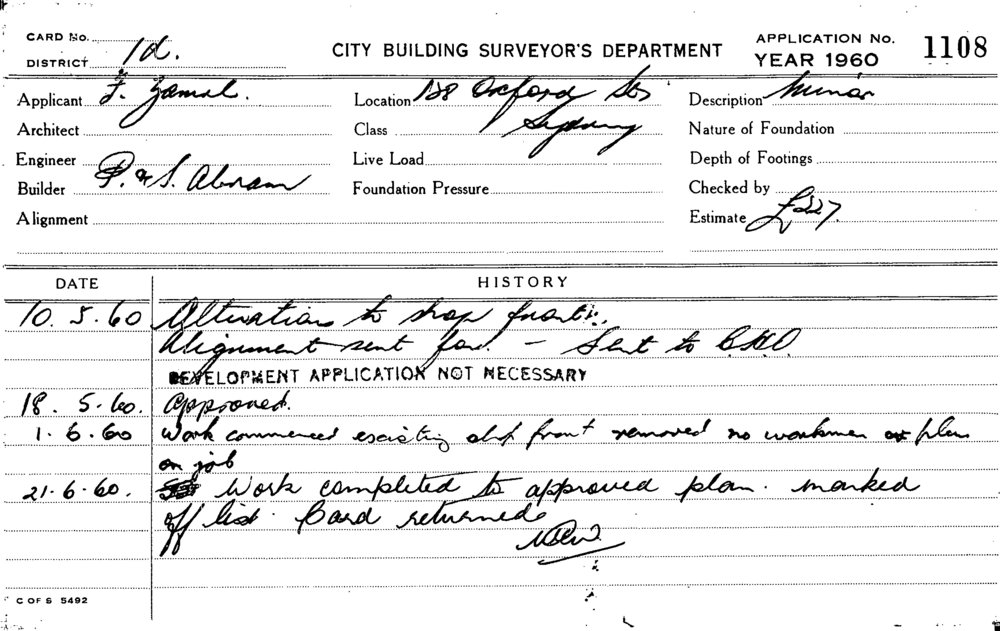 CARD No.
DISTRICT 1d.
CITY BUILDING SURVEYOR'S DEPARTMENT
APPLICATION No. 1108
YEAR 1960
Applicant F. Zamal. Location 128 Oxford St Description Minor
Architect Class Sydney Nature of Foundation
Engineer Live Load Depth of Footings
Builder P. & S. Abram Foundation Pressure Checked by
Alignment Estimate £227
DATE HISTORY
10.5.60 Alterations to shop front.
Alignment sent for. - Sent to
DEVELOPMENT APPLICATION NOT NECESSARY
18.5.60. Approved.
1.6.60 Work commenced existing shop front removed no workmen or plan
on job
21.6.60. Work completed to approved plan. marked
off list. Card returned
C OF S 5492